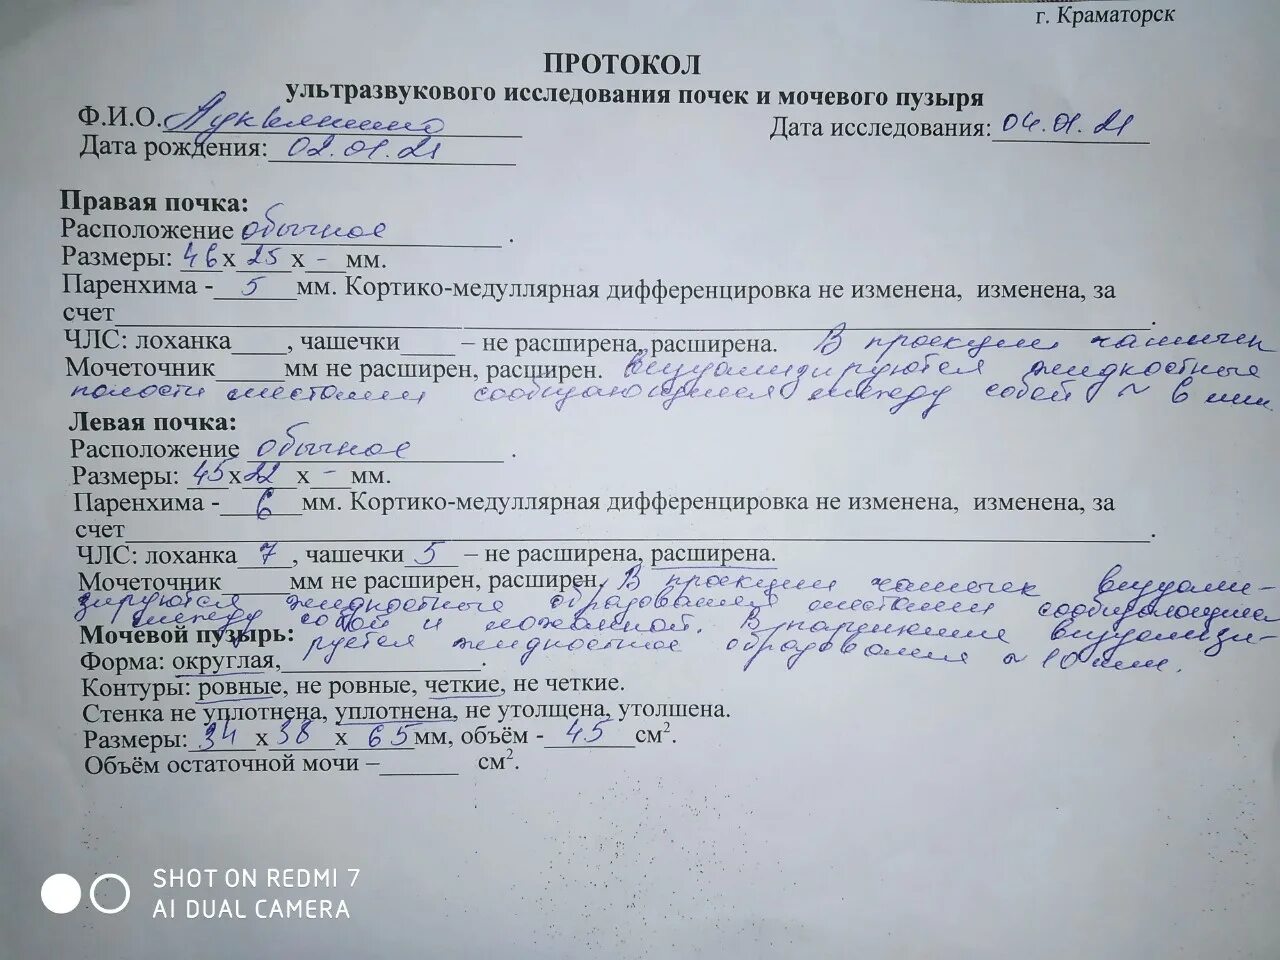 г. Краматорск
ПРОТОКОЛ
ультразвукового исследования почек и мочевого пузыря
Ф.И.О.
Дата исследования: 04.01.21
Дата рождения: 02.01.21
Правая почка:
Расположение обычное.
Размеры: 46х 25 х - мм.
Паренхима - 5 мм. Кортико-медуллярная дифференцировка не изменена, изменена, за
счет___.
ЧЛС: лоханка____, чашечки____ – не расширена, расширена. В проекции чашечек
Мочеточник_____ мм не расширен, расширен. визуализируются жидкостные
полости местами сообщающиеся между собой ~ 6 мм.
Левая почка:
Расположение обычное.
Размеры: 45х22 х - мм.
Паренхима - 6 мм. Кортико-медуллярная дифференцировка не изменена, изменена, за
счет___.
ЧЛС: лоханка 7, чашечки 5 – не расширена, расширена.
Мочеточник_____мм не расширен, расширен. В проекции чашечек визуали-
зируются жидкостные образования местами сообщающиеся
между собой и лоханкой. В паренхиме визуализи-
Мочевой пузырь: руется жидкостное образование ~ 10 мм.
Форма: округлая,___.
Контуры: ровные, не ровные, четкие, не четкие.
Стенка не уплотнена, уплотнена, не утолщена, утолшена.
Размеры: 34 х 38 х 65мм, объём - 45 см².
Объём остаточной мочи –______ см².
SHOT ON REDMI 7
AI DUAL CAMERA